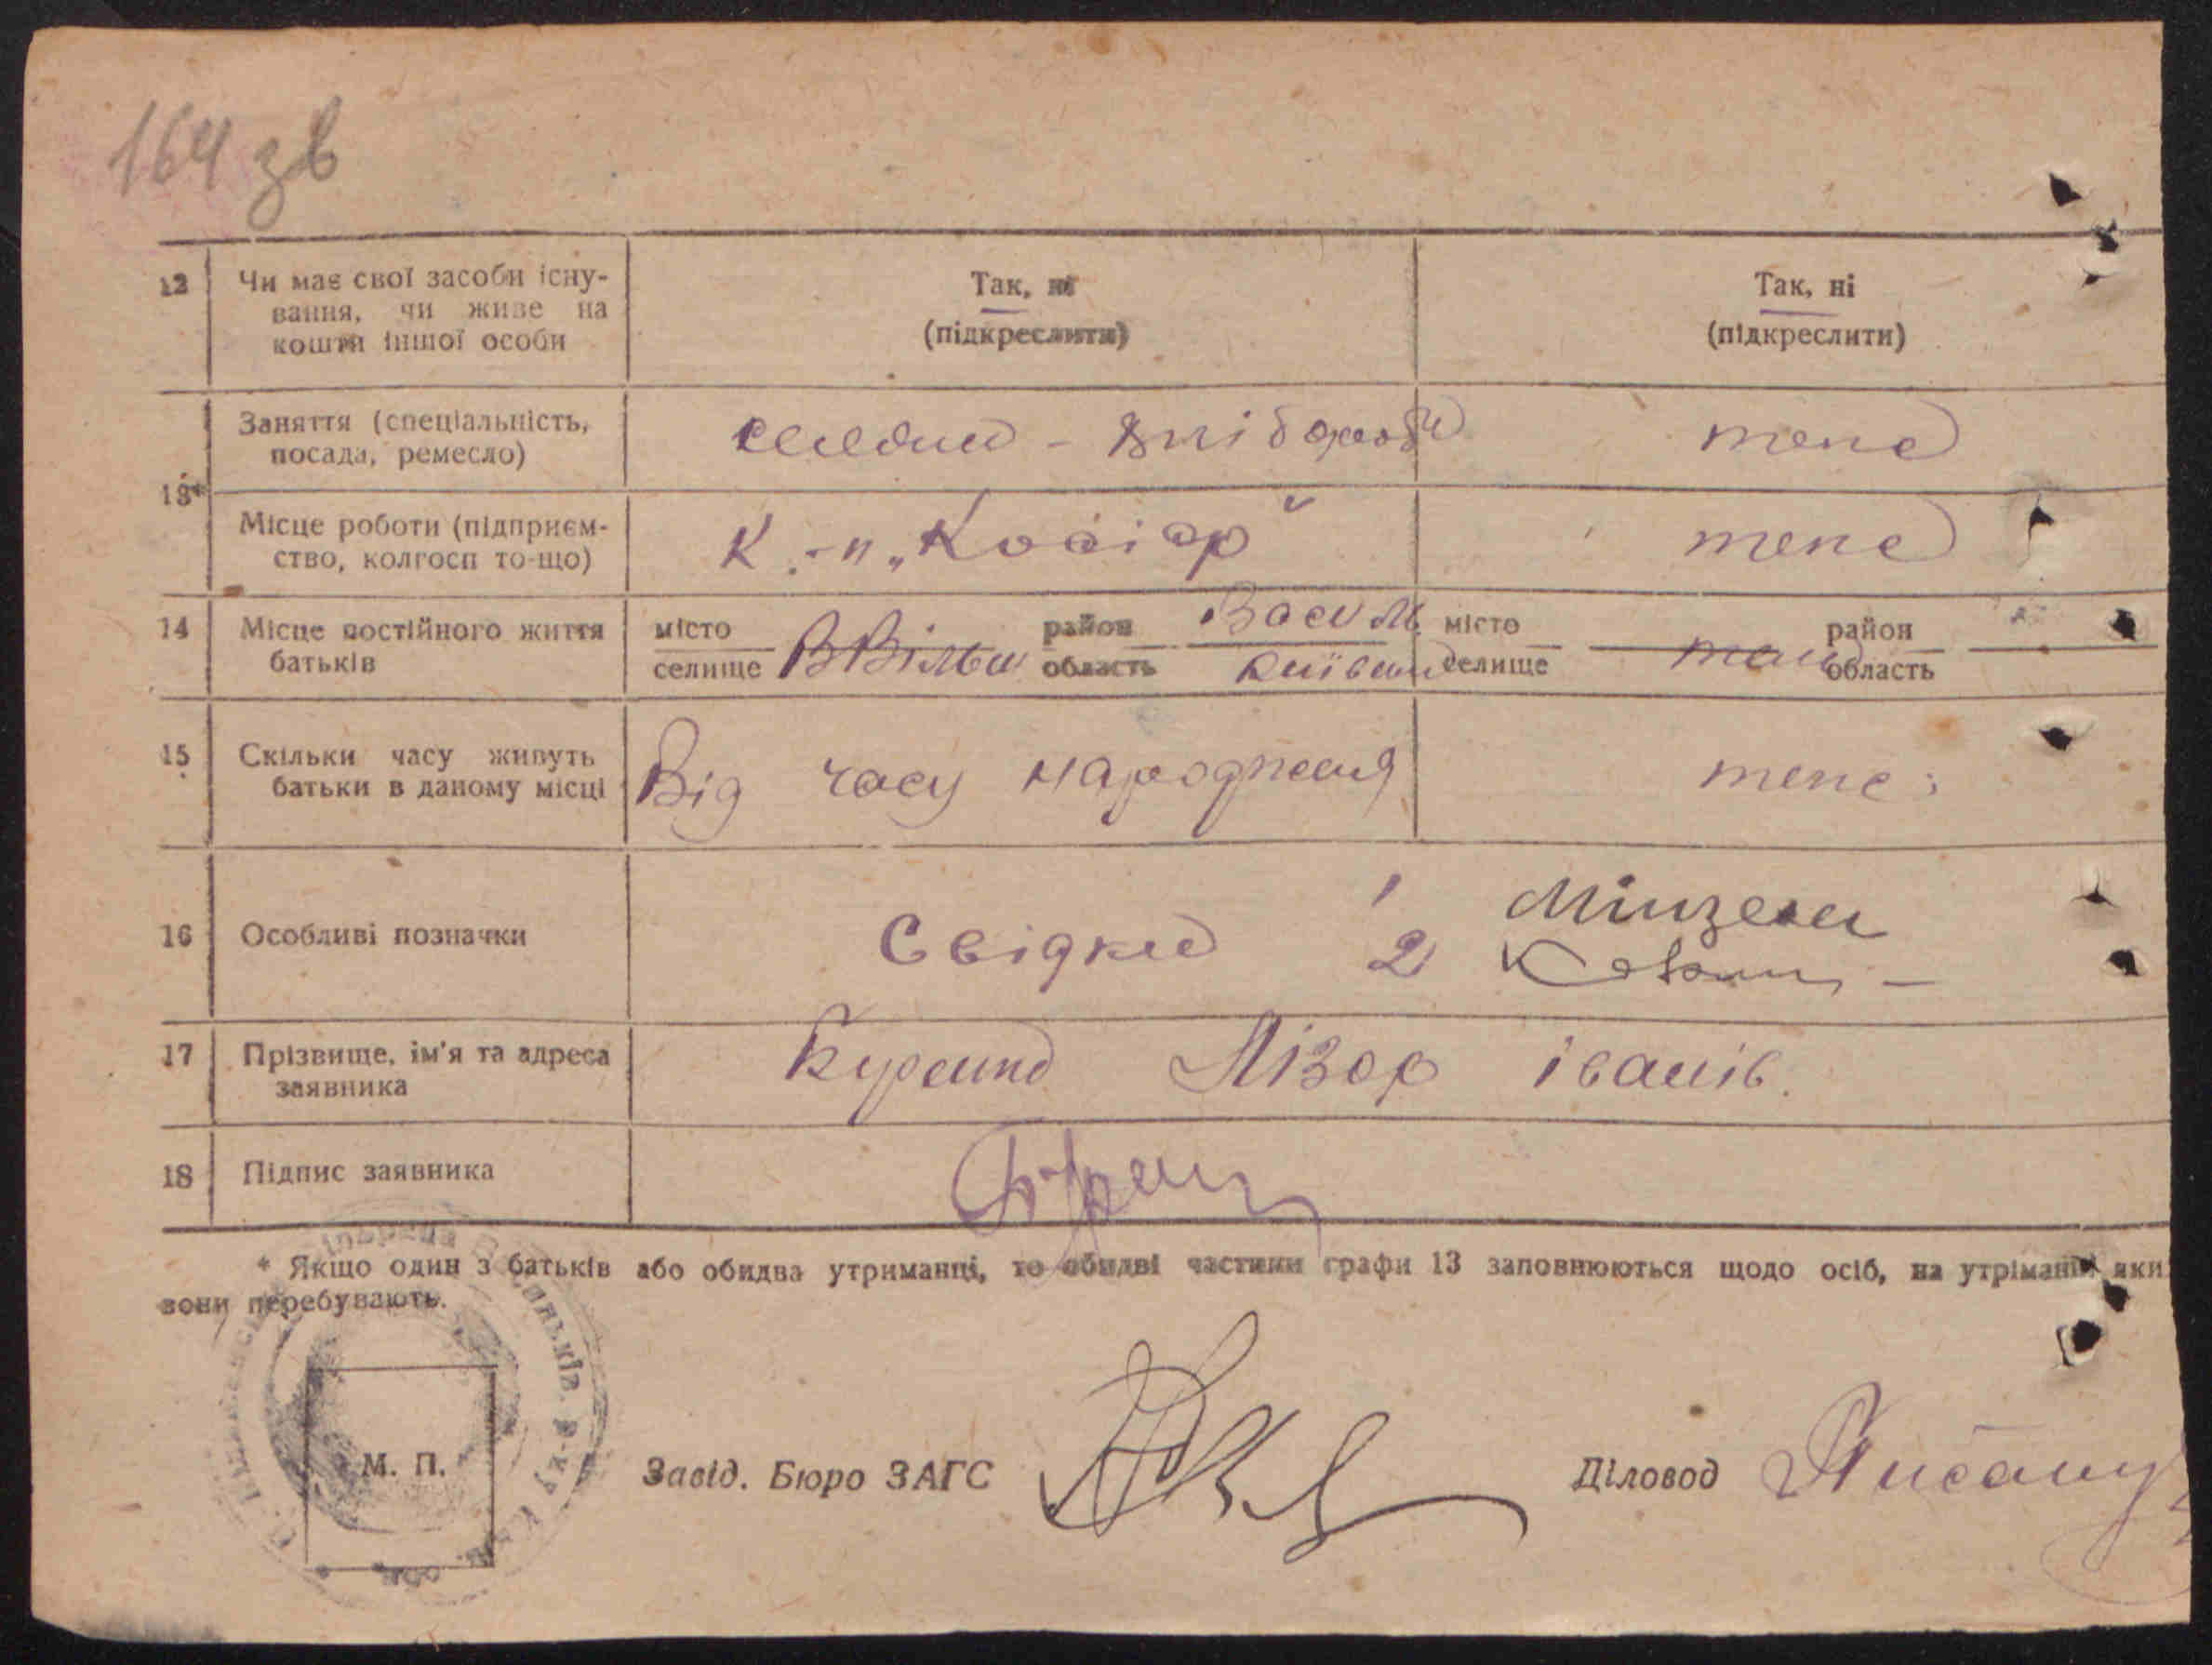 164 зв
12 Чи має свої засоби існу-
вання, чи живе на
кошти іншої особи
Так, ні
(підкреслити)
Так, ні
(підкреслити)
13*
Заняття (спеціальність,
посада, ремесло)
хлібороб
теме
Місце роботи (підприєм-
ство, колгосп то-що)
К.-п „Косіор"
теме
14 Місце постійного життя
батьків
місто
селище
ВВільш
район
область
Васил
Київськ
місто
селище
район
область
15 Скільки часу живуть
батьки в даному місці
Від часу народження
теме
16 Особливі позначки
Свідки 1
2
17 Прізвище, ім'я та адреса
заявника
Лізор Іванів.
18 Підпис заявника
* Якщо один з батьків або обидва утриманці, то обидві частини графи 13 заповнюються щодо осіб, на утріманні яких
вони перебувають.
М. П.
Завід. Бюро ЗАГС
Діловод